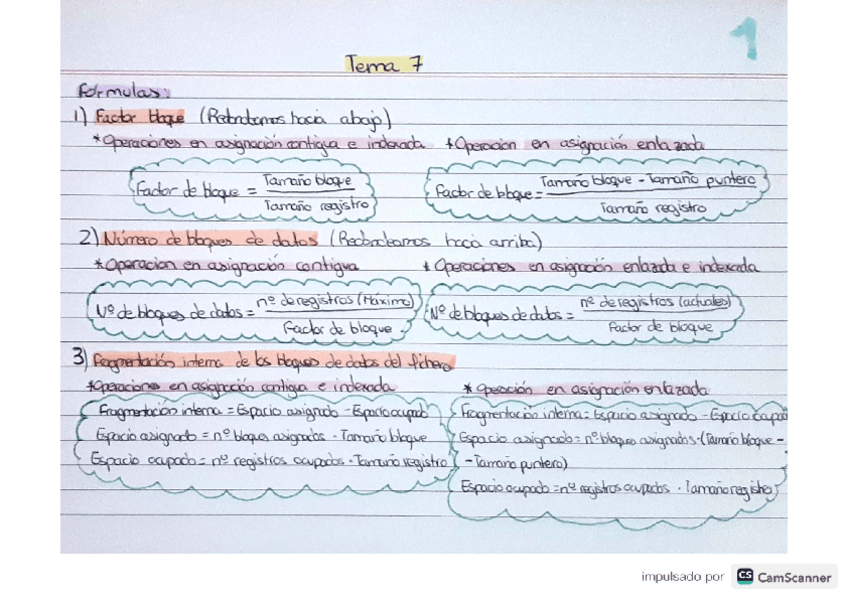 1
Tema 7
Fórmulas:
1) Factor bloque (Redondeamos hacia abajo)
*Operaciones en asignación contigua e indexada *Operación en asignación enlazada
Factor de bloque = Tamaño bloque / Tamaño registro
Factor de bloque = Tamaño bloque - Tamaño puntero / Tamaño registro
2) Número de bloques de datos (Redondeamos hacia arriba)
*Operacion en asignación contigua * Operaciones en asignación enlazada e indexada
Nº de bloques de datos = nº de registros (Máximo) / Factor de bloque
Nº de bloques de datos = nº de registros (actuales) / Factor de bloque
3) Fragmentación interna de los bloques de datos del fichero
*Operaciones en asignación contigua e indexada * Operación en asignación enlazada
Fragmentación interna = Espacio asignado - Espacio ocupado
Espacio asignado = nº bloques asignados · Tamaño bloque
Espacio ocupado = nº registros ocupados · Tamaño registro
Fragmentación interna = Espacio asignado - Espacio ocupado
Espacio asignado = nº bloques asignados · (Tamaño bloque -
- Tamaño puntero)
Espacio ocupado = nº registros ocupados · Tamaño registro
impulsado por CS CamScanner